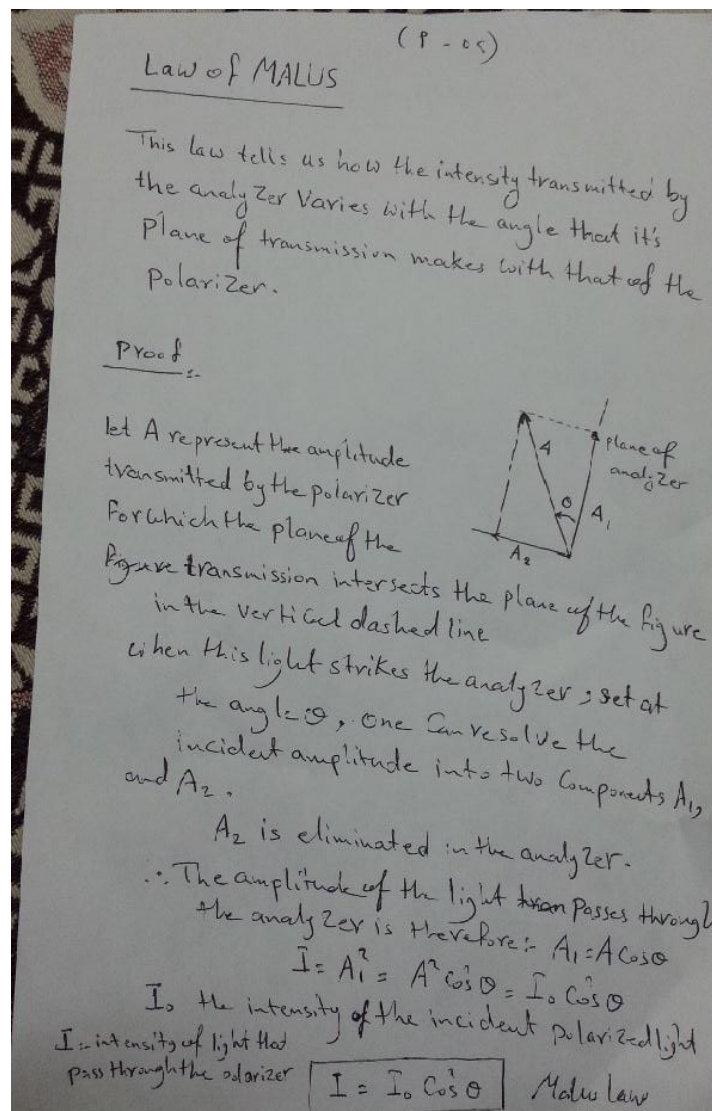 (P-05)
Law of MALUS
This law tells us how the intensity transmitted by
the analyZer Varies with the angle that it's
Plane of transmission makes with that of the
PolariZer.
Proof :-
let A represent the amplitude
transmitted by the polarizer
For which the plane of the
figure transmission intersects the plane of the figure
in the vertical dashed line
when this light strikes the analyzer, set at
the angle θ, one Can resolve the
incident amplitude into two Components A₁,
and A₂.
A₂ is eliminated in the analyZer.
∴ The amplitude of the light Passes through
the analyZer is therefore :- A₁ = A Cosθ
I = A₁² = A² Cos²θ = I₀ Cos²θ
I₀ the intensity of the incident polarized light
I :- intensity of light that
pass through the polarizer
I = I₀ Cos²θ
Malus law
A
θ
A₁
A₂
plane of
analyZer